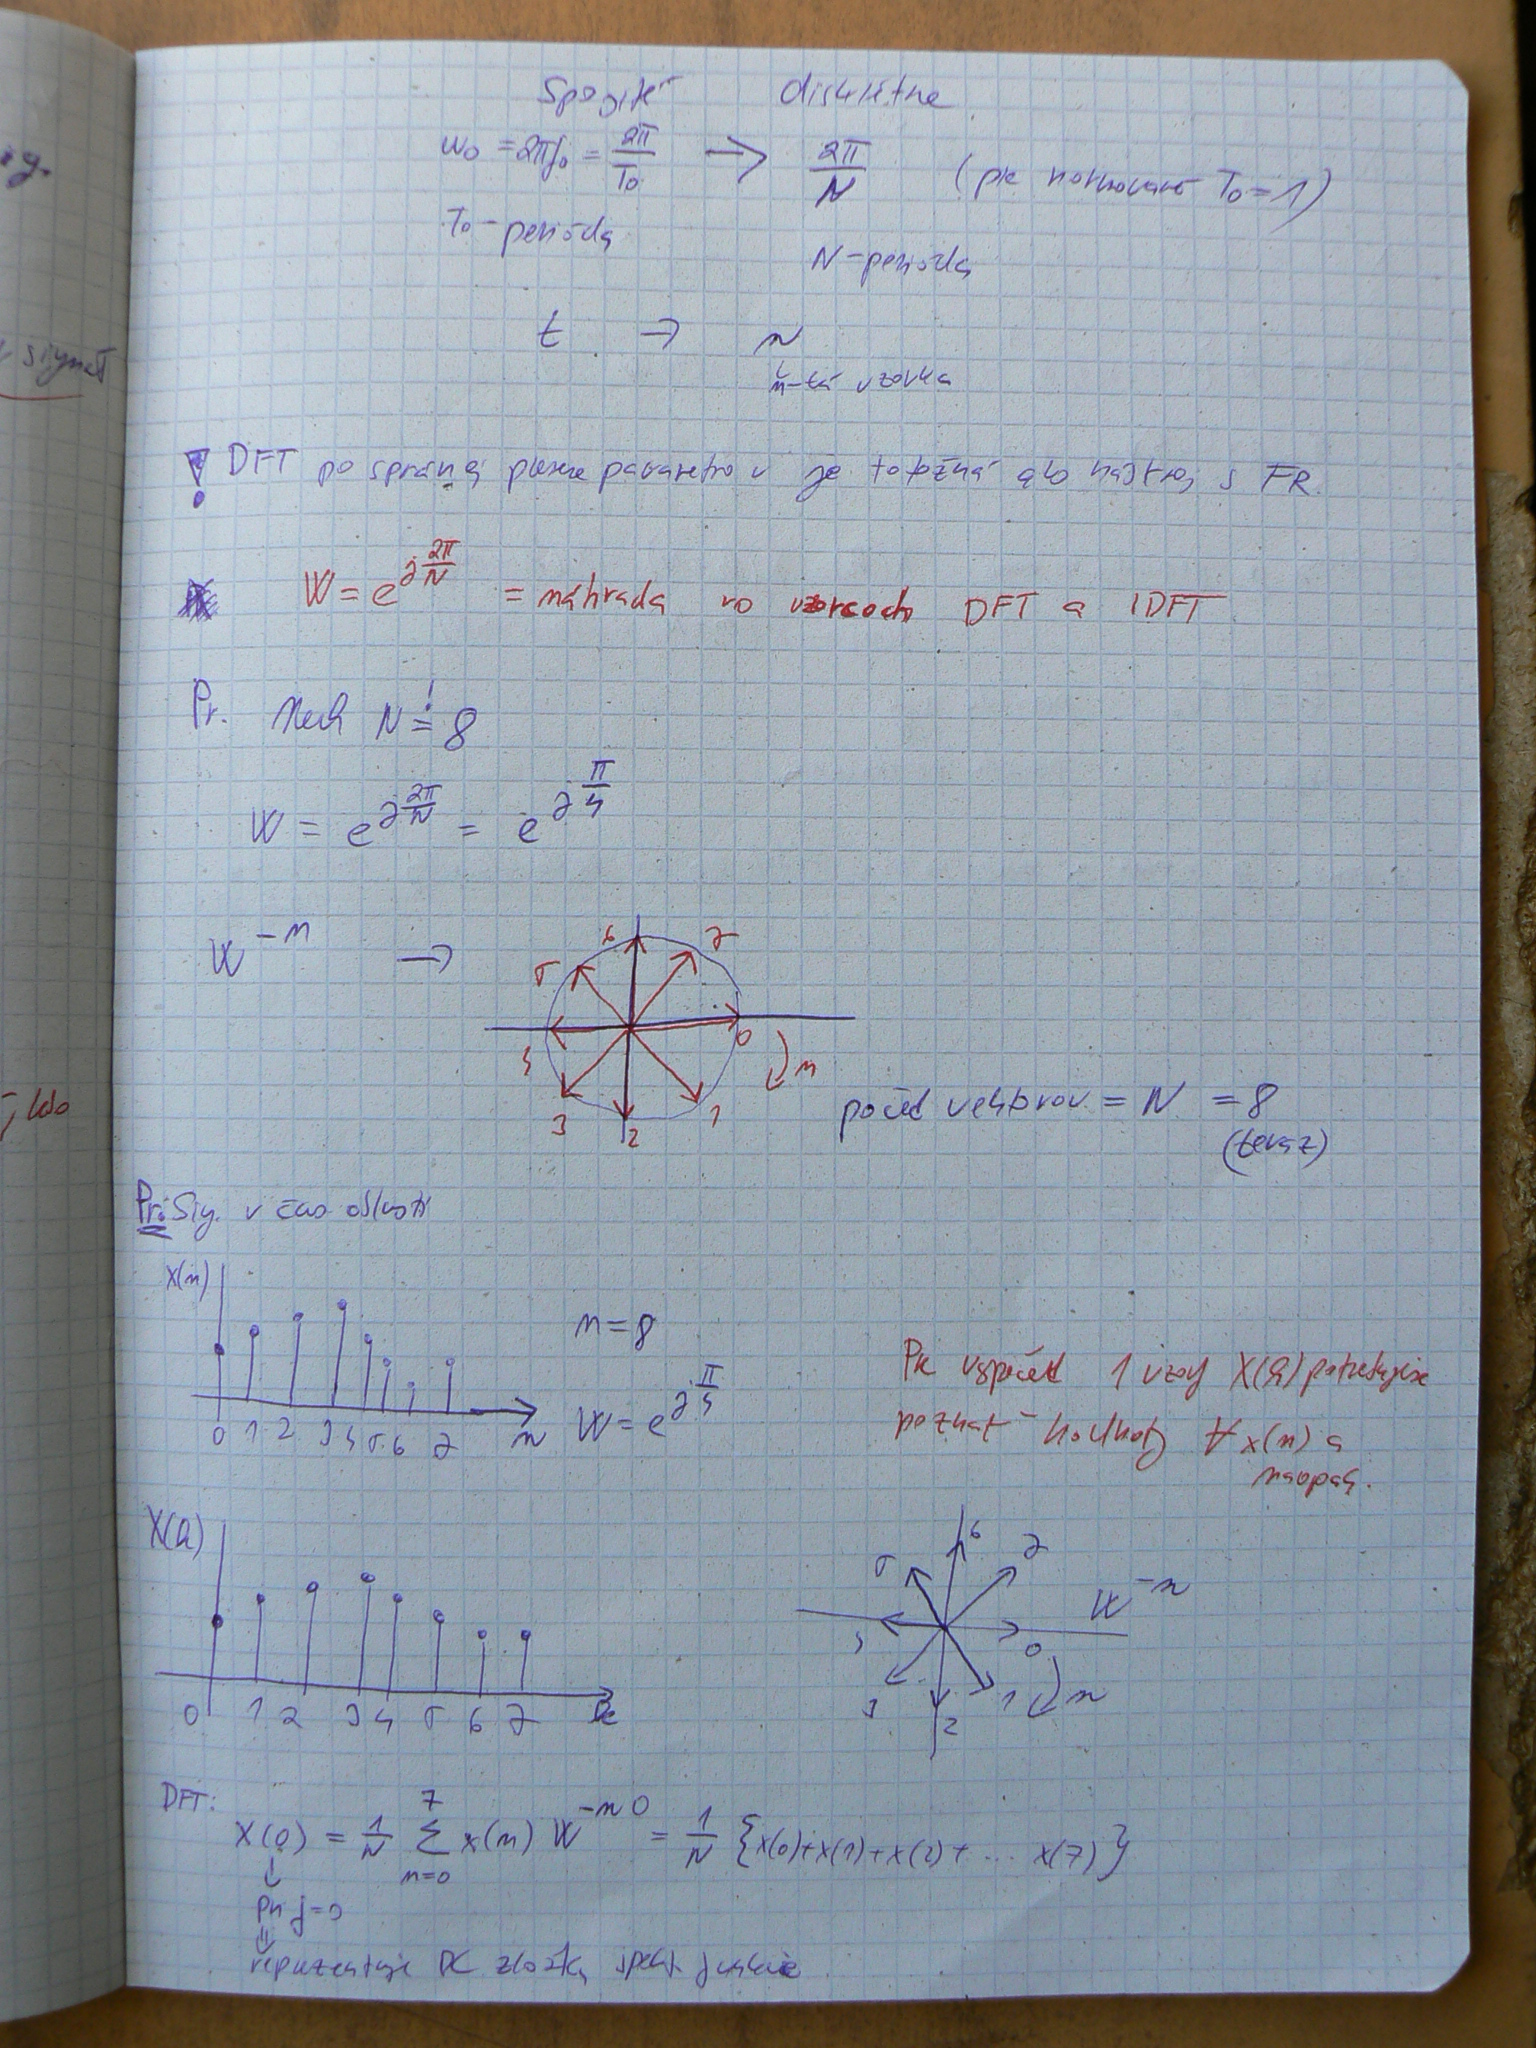 Spojité diskrétne
ω₀ = 2πf₀ = 2π/T₀ → 2π/N (pre normované T₀=1)
T₀ - perióda
N - perióda
t → n
n-tá vzorka
! DFT po správnej parametrov je totožná ako nástroj s FR.
W = e^{j 2π/N} = náhrada vo vzorcoch DFT a IDFT
Pr. Nech N = 8
W = e^{j 2π/N} = e^{j π/4}
W^{-n} →
6 7
5
4 0
n
3 2 1
počet vektorov = N = 8
(teraz)
Pr: Sig. v čas oblasti
x(n)
n=8
W = e^{j π/4}
0 1 2 3 4 5 6 7 n
Pre výpočet 1 vzorky X(k) potrebujeme
poznať hodnoty ∀ x(n) a
naopak.
X(k)
6 7
5
W^{-n}
4 0
3 2 1 n
0 1 2 3 4 5 6 7 k
DFT:
X(0) = 1/N Σ_{n=0}^{7} x(n) W^{-n0} = 1/N {x(0)+x(1)+x(2)+ ... x(7)}
↓
pri f=0
⇓
reprezentuje DC zložku spekt. funkcie